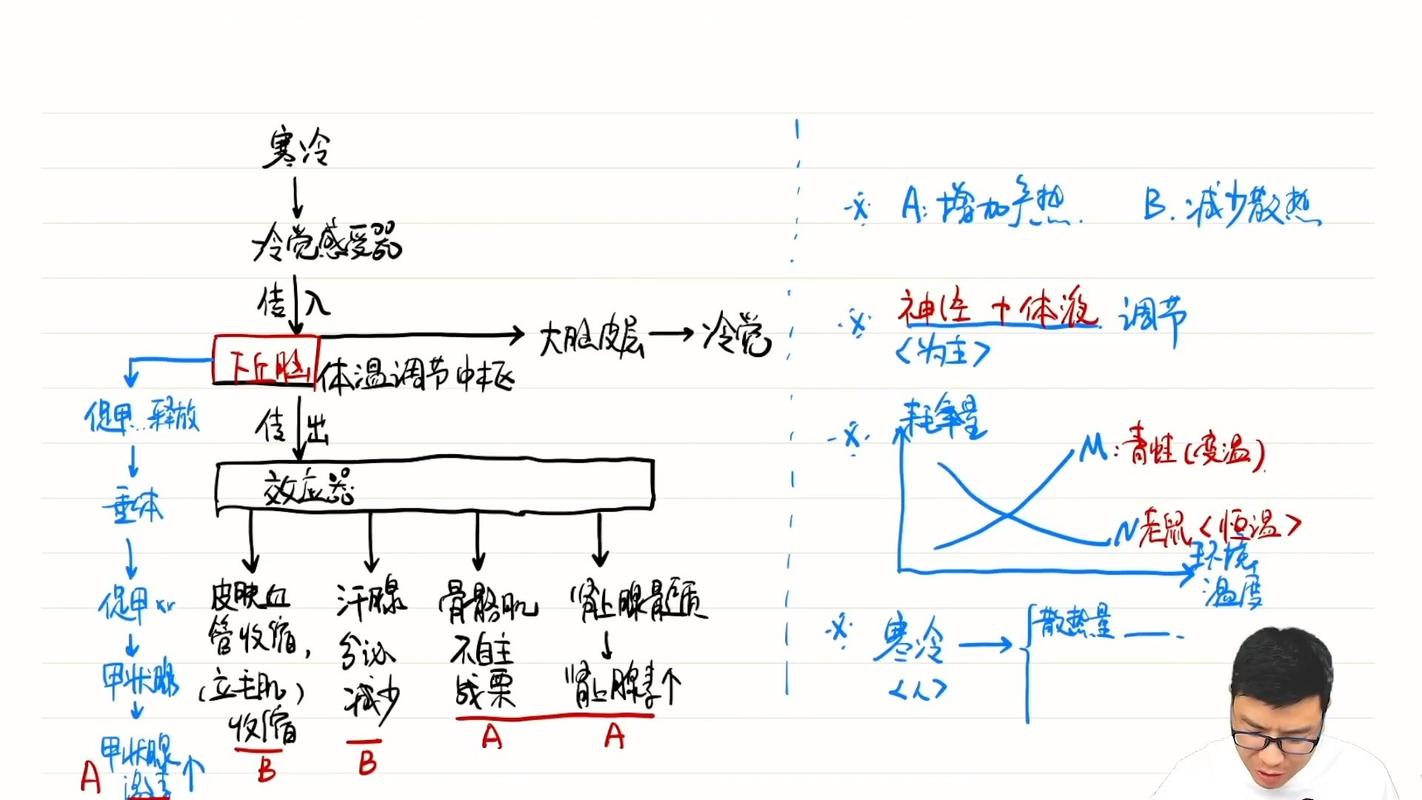 寒冷
冷觉感受器
传入
下丘脑 体温调节中枢
大脑皮层 → 冷觉
传出
效应器
皮肤血
管收缩,
(立毛肌)
收缩
B
汗腺
分泌
减少
B
骨骼肌
不自主
战栗
A
肾上腺髓质
肾上腺素↑
A
促甲..释放
垂体
促甲
甲状腺
甲状腺
激素↑
A
A:增加产热. B.减少散热
神经+体液 调节
<为主>
耗氧量
M:青蛙(变温)
N老鼠<恒温>
环境
温度
寒冷 →
<人>
散热量